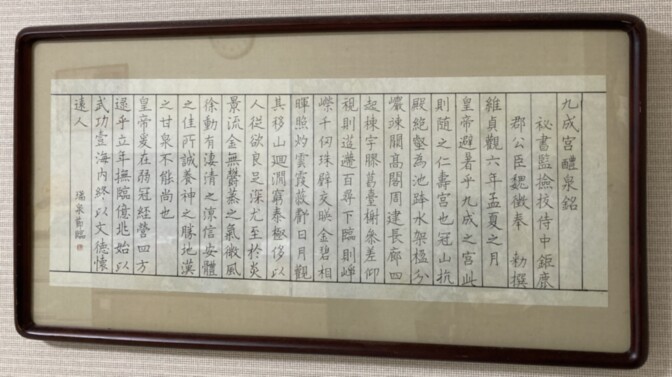 九成宮醴泉銘
秘書監撿挍侍中鉅鹿
郡公臣魏徵奉 勑撰
維貞觀六年孟夏之月
皇帝避暑乎九成之宮此
則隨之仁壽宮也冠山抗
殿絕壑為池跨水架楹分
巖竦闕高閣周建長廊四
起棟宇膠葛臺榭參差仰
視則迢遰百尋下臨則崢
嶸千仞珠璧交暎金碧相
暉照灼雲霞蔽虧日月觀
其移山迴澗窮泰極侈以
人從欲良足深尤至於炎
景流金無鬱蒸之氣微風
徐動有淒清之涼信安體
之佳所誠養神之勝地漢
之甘泉不能尚也
皇帝爰在弱冠經營四方
逮乎立年撫臨億兆始以
武功壹海內終以文德懷
遠人